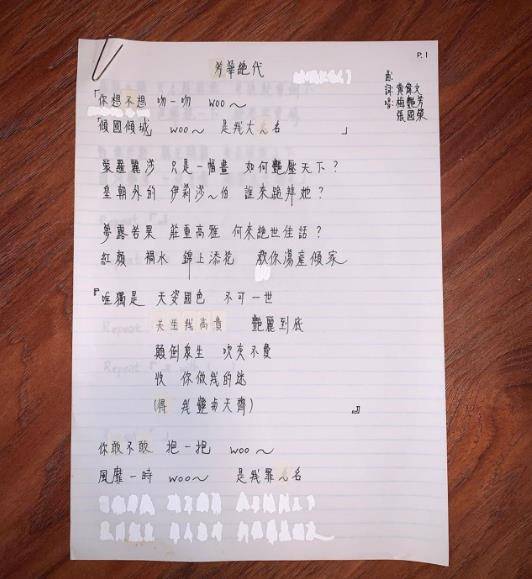 P.1
芳華絕代
曲:
詞:黃偉文
唱:梅艷芳
張國榮
「你想不想 吻一吻 woo~
傾國傾城 woo~ 是我大~名 」
蒙羅麗莎 只是一幅畫 如何艷壓天下?
皇朝外的 伊莉莎~伯 誰來跪拜她?
夢露若果 莊重高雅 何來絕世佳話?
紅顏 禍水 錦上添花 教你蕩產傾家
『唯獨是 天姿國色 不可一世
天生我高貴 艷麗到底
顛倒眾生 吹灰不費
收 你做我的迷
(得 我艷與天齊) 』
你敢不敢 抱一抱 woo~
風靡一時 woo~ 是我罪~名